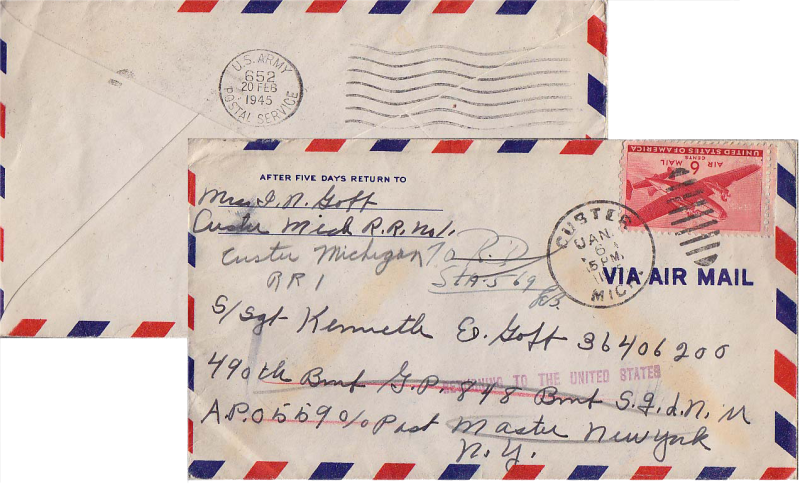 U.S. ARMY
652
20 FEB
1945
POSTAL SERVICE
UNITED STATES OF AMERICA
6
CENTS
AIR MAIL
AFTER FIVE DAYS RETURN TO
Mrs I. N. Goff
Custer Mich R.R. No 1.
Custer Michigan
RR 1
To R.D
Sta-5-69
CUSTER
JAN
6
5 PM
MICH
VIA AIR MAIL
S/Sgt Kenneth E. Goff 36406200
RETURNING TO THE UNITED STATES
490th Bmt G.P. 848 Bmt S.q.d.n. M
A.P.O 559 c/o Post Master New York
N.Y.